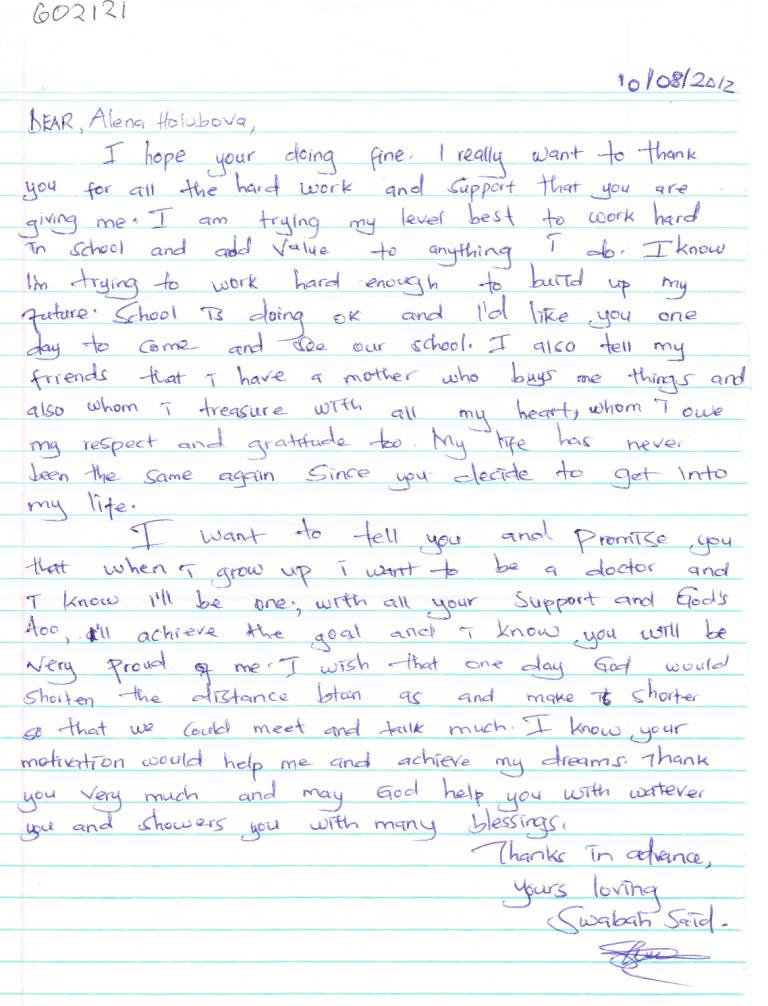 GO2121
10/08/2012
DEAR, Alena Holubova,
I hope your doing fine. I really want to thank
you for all the hard work and support that you are
giving me. I am trying my level best to work hard
in school and add value to anything i do. I know
Im trying to work hard enough to build up my
future. School is doing ok and I'd like you one
day to come and see our school. I also tell my
friends that i have a mother who buys me things and
also whom i treasure with all my heart, whom I owe
my respect and gratitude too. My life has never
been the same again since you decide to get into
my life.
I want to tell you and promise you
that when i grow up i want to be a doctor and
I know I'll be one, with all your support and God's
too, I'll achieve the goal and i know you will be
very proud of me. I wish that one day God would
shorten the distance btwn as and make it shorter
so that we could meet and talk much. I know your
motivation would help me and achieve my dreams. Thank
you very much and may God help you with watever
you and showers you with many blessings.
Thanks in advance,
yours loving
Swabah Said.